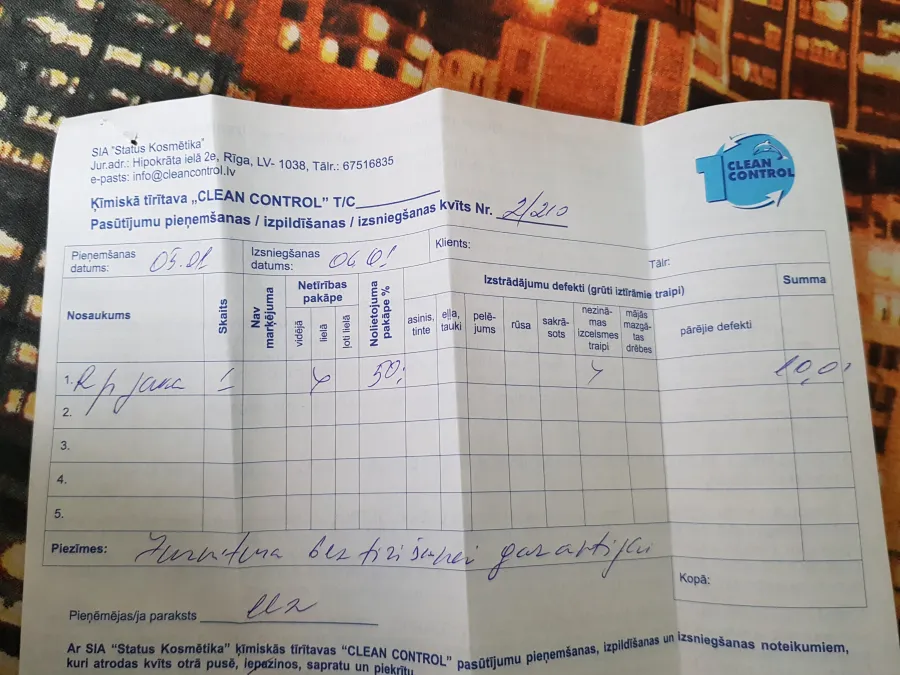 SIA "Status Kosmētika"
Jur.adr.: Hipokrāta ielā 2e, Rīga, LV- 1038, Tālr.: 67516835
e-pasts: info@cleancontrol.lv
1 CLEAN CONTROL
Ķīmiskā tīrītava „CLEAN CONTROL" T/C
Pasūtījumu pieņemšanas / izpildīšanas / izsniegšanas kvīts Nr. 2/210
Pieņemšanas datums: 05.01 Izsniegšanas datums: 06.01 Klients: Tālr:
Nosaukums Skaits Nav marķējuma Netīrības pakāpe vidējā lielā ļoti lielā Nolietojuma pakāpe % Izstrādājumu defekti (grūti iztīrāmie traipi) asinis, tinte eļļa, tauki pelējums rūsa sakrāsots nezināmas izcelsmes traipi mājās mazgātas drēbes pārējie defekti Summa
1. jaka 1 50
2.
3.
4.
5.
Piezīmes: Furnitura bez garantijas
Kopā:
Pieņēmējas/ja paraksts
Ar SIA "Status Kosmētika" ķīmiskās tīrītavas "CLEAN CONTROL" pasūtījumu pieņemšanas, izpildīšanas un izsniegšanas noteikumiem,
kuri atrodas kvīts otrā pusē, iepazinos, sapratu un piekrītu.